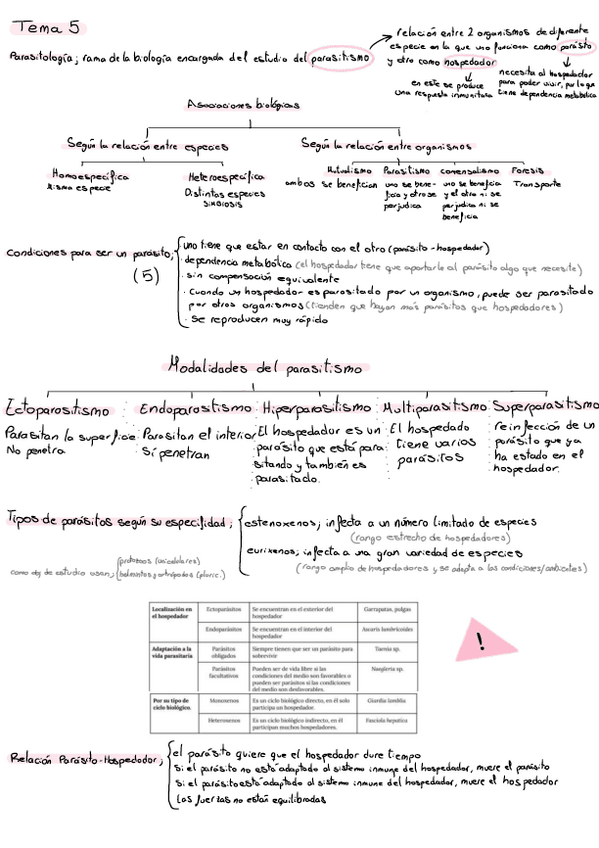 Tema 5
Parasitología; rama de la biología encargada del estudio del parasitismo
relación entre 2 organismos de diferente
especie en la que uno funciona como parásito
y otro como hospedador
en este se produce
una respuesta inmunitaria
necesita al hospedador
para poder vivir, por lo que
tiene dependencia metabólica
Asociaciones biológicas
Según la relación entre especies
Según la relación entre organismos
Homoespecífica
Misma especie
Heteroespecífica
Distintas especies
SIMBIOSIS
Mutualismo
ambos se benefician
Parasitismo
uno se bene-
ficia y otro se
perjudica
comensalismo
uno se beneficia
y el otro ni se
perjudica ni se
beneficia
Foresis
Transporte
Condiciones para ser un parásito;
(5)
uno tiene que estar en contacto con el otro (parásito-hospedador)
· dependencia metabólica (el hospedador tiene que aportarle al parásito algo que necesite)
· sin compensación equivalente
· Cuando un hospedador es parasitado por un organismo, puede ser parasitado
por otros organismos (tienden que hayan más parásitos que hospedadores)
· Se reproducen muy rápido
Modalidades del parasitismo
Ectoparasitismo
Parasitan la superficie
No penetra
Endoparasitismo
Parasitan el interior
Sí penetran
Hiperparasitismo
El hospedador es un
parásito que está para-
sitando y también es
parasitado.
Multiparasitismo
El hospedado
tiene varios
parásitos
Superparasitismo
reinfección de un
parásito que ya
ha estado en el
hospedador.
Tipos de parásitos según su especifidad;
estenoxenos; infecta a un número limitado de especies
(rango estrecho de hospedadores)
eurixenos; infecta a una gran variedad de especies
(rango amplio de hospedadores y se adapta a las condiciones/ambientes)
como obj de estudio usan;
protozoos (unicelulares)
helmintos y artrópodos (pluric.)
Localización en el hospedador
Ectoparásitos
Se encuentran en el exterior del hospedador
Garrapatas, pulgas
Endoparásitos
Se encuentran en el interior del hospedador
Ascaris lumbricoides
Adaptación a la vida parasitaria
Parásitos obligados
Siempre tienen que ser un parásito para sobrevivir
Taenia sp.
Parásitos facultativos
Pueden ser de vida libre si las condiciones del medio son favorables o pueden ser parásitos si las condiciones del medio son desfavorables.
Naegleria sp.
Por su tipo de ciclo biológico.
Monoxenos
Es un ciclo biológico directo, en él solo participa un hospedador.
Giardia lamblia
Heteroxenos
Es un ciclo biológico indirecto, en él participan muchos hospedadores.
Fasciola hepatica
!
Relación Parásito-Hospedador;
el parásito quiere que el hospedador dure tiempo
si el parásito no está adaptado al sistema inmune del hospedador, muere el parásito
si el parásito está adaptado al sistema inmune del hospedador, muere el hospedador
las fuerzas no están equilibradas